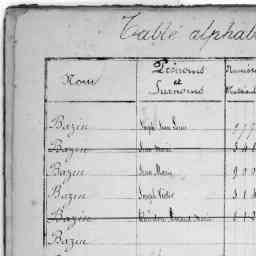 Table alphab
Nom
Prénoms
et
Surnoms
Numéro
Matricul
Bazin Joseph Jean Louis 977
Bazin Jean Marie
Bazin Jean Marie 900
Bazin Joseph Victor
Bazin Marie
Bazin